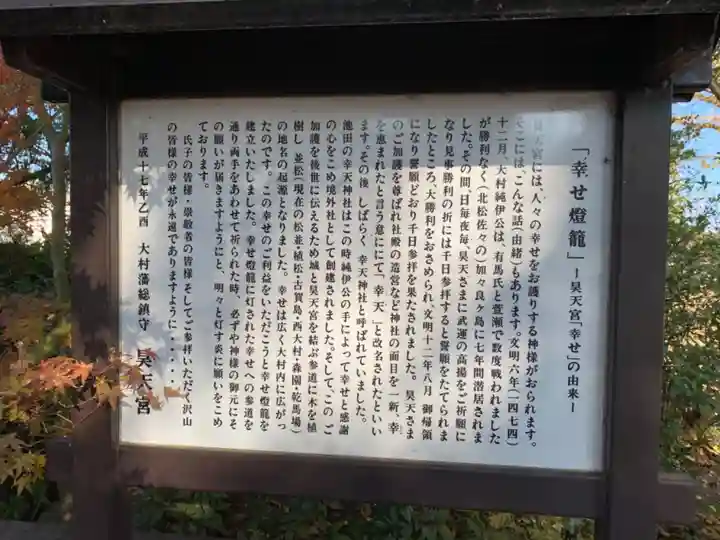 「幸せ燈籠」－昊天宮「幸せ」の由来－
昊天宮には、人々の幸せをお護りする神様がおられます。
そこには、こんな話(由緒)もあります。文明六年(一四七四)
十二月 大村純伊公は、有馬氏と萱瀬で数度戦われました
が勝利なく(北松佐々の)加々良ヶ島に七年間潜居されま
した。その間、日毎夜毎、昊天さまに武運の高揚をご祈願に
なり見事勝利の折には千日参拝すると誓願をたてられま
したところ、大勝利をおさめられ、文明十二年八月 御帰領
になり誓願どおり千日参拝を果たされました。 昊天さま
のご加護を尊ばれ社殿の造営など神社の面目を一新、幸
を恵まれたと言う意にて「幸天」と改名されたといい
ます。その後 しばらく 幸天神社と呼ばれていました。
池田の幸天神社はこの時純伊公の手によって幸せと感謝
の心をこめ境外社として創建されました。そして、この ご
加護を後世に伝えるため城と昊天宮を結ぶ参道に木を植
樹し 並松(現在の松並・植松・古賀島・西大村・森園・乾馬場)
の地名の起源となりました。幸せは広く大村内に広がっ
たのです。この幸せのご利益をいただこうと幸せ燈籠を
建立いたしました。幸せ燈籠に灯された幸せへの参道を
通り両手をあわせて祈られた時、必ずや神様の御元にそ
の願いが届きますようにと、明々と灯す炎に願いをこめ
ております。
氏子の皆様・崇敬者の皆様 そしてご参拝いただく沢山
の皆様の幸せが永遠でありますように・・・・・・
平成十七年乙酉 大村藩総鎮守 昊天宮